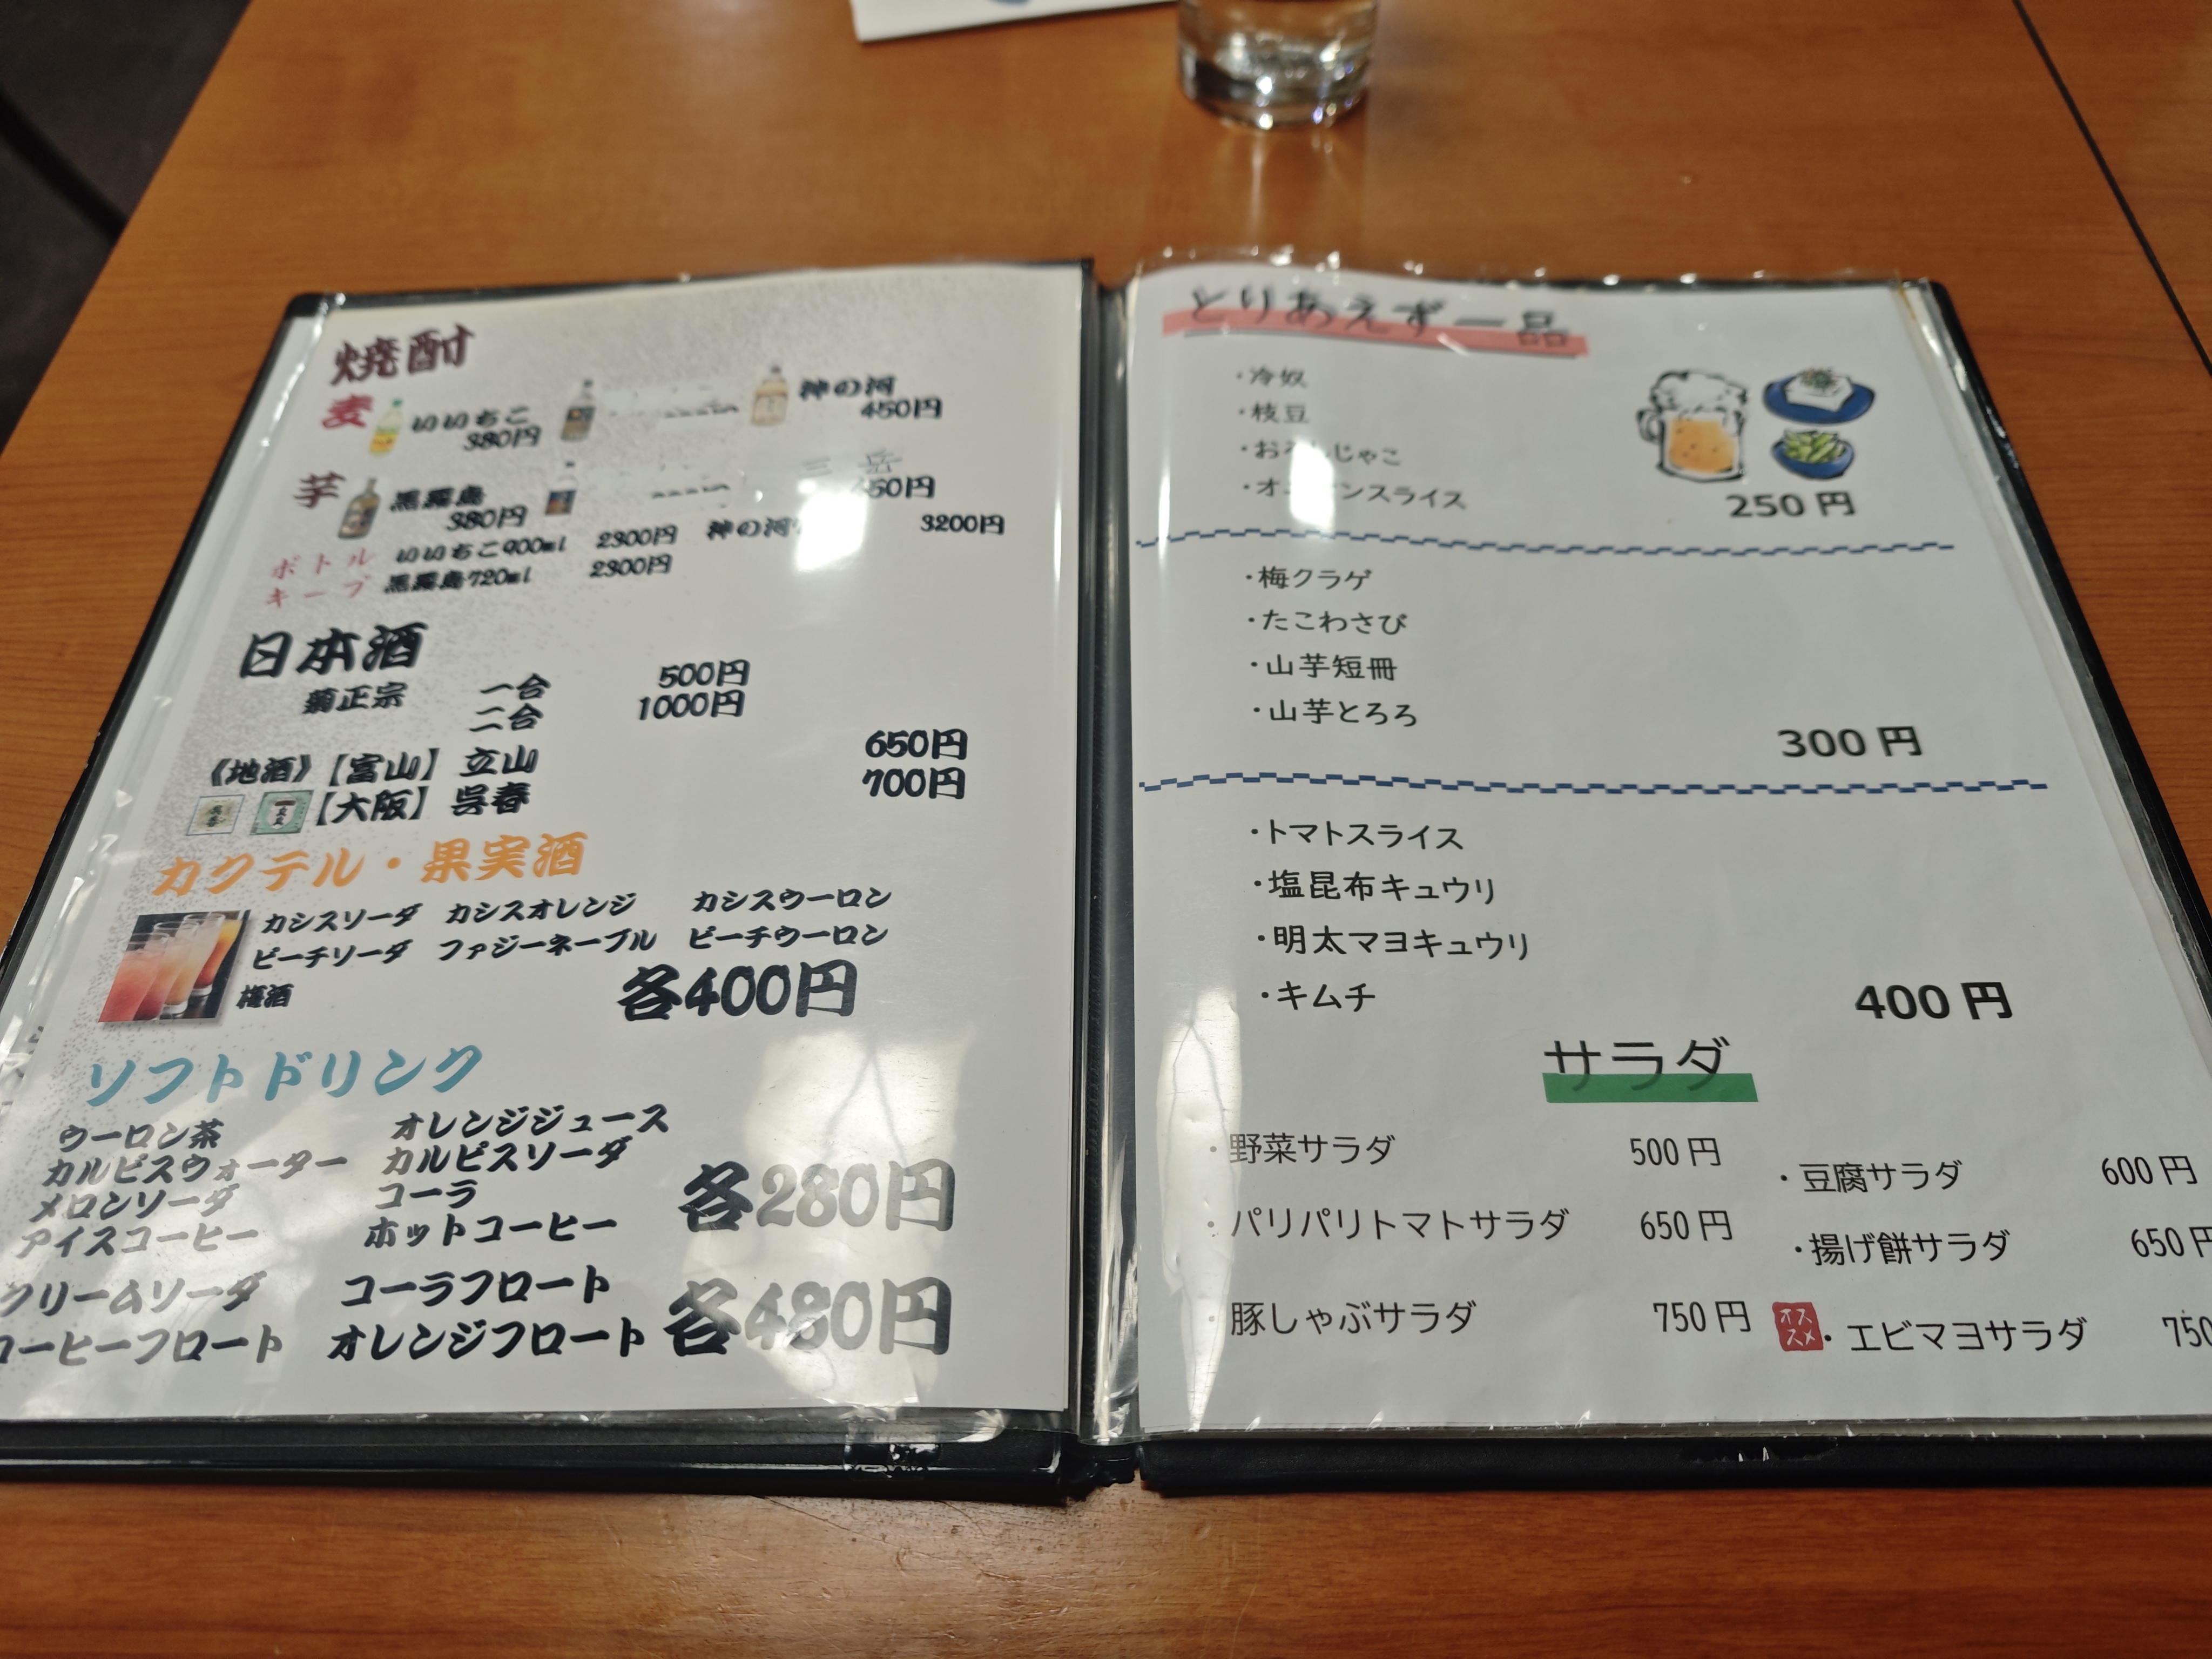 焼酎
麦 いいちこ 神の河
380円 450円
芋 黒霧島 三岳
380円 450円
ボトル いいちこ900ml 2300円 神の河 3200円
キープ 黒霧島720ml 2300円
日本酒
菊正宗 一合 500円
二合 1000円
《地酒》【富山】 立山 650円
【大阪】 呉春 700円
カクテル・果実酒
カシスソーダ カシスオレンジ カシスウーロン
ピーチソーダ ファジーネーブル ピーチウーロン
梅酒
各400円
ソフトドリンク
ウーロン茶 オレンジジュース
カルピスウォーター カルピスソーダ
メロンソーダ コーラ
アイスコーヒー ホットコーヒー
各280円
クリームソーダ コーラフロート
コーヒーフロート オレンジフロート
各480円
とりあえず一品
・冷奴
・枝豆
・おろしじゃこ
・オニオンスライス
250円
・梅クラゲ
・たこわさび
・山芋短冊
・山芋とろろ
300円
・トマトスライス
・塩昆布キュウリ
・明太マヨキュウリ
・キムチ
400円
サラダ
・野菜サラダ 500円
・豆腐サラダ 600円
・パリパリトマトサラダ 650円
・揚げ餅サラダ 650円
・豚しゃぶサラダ 750円
オススメ
・エビマヨサラダ 750